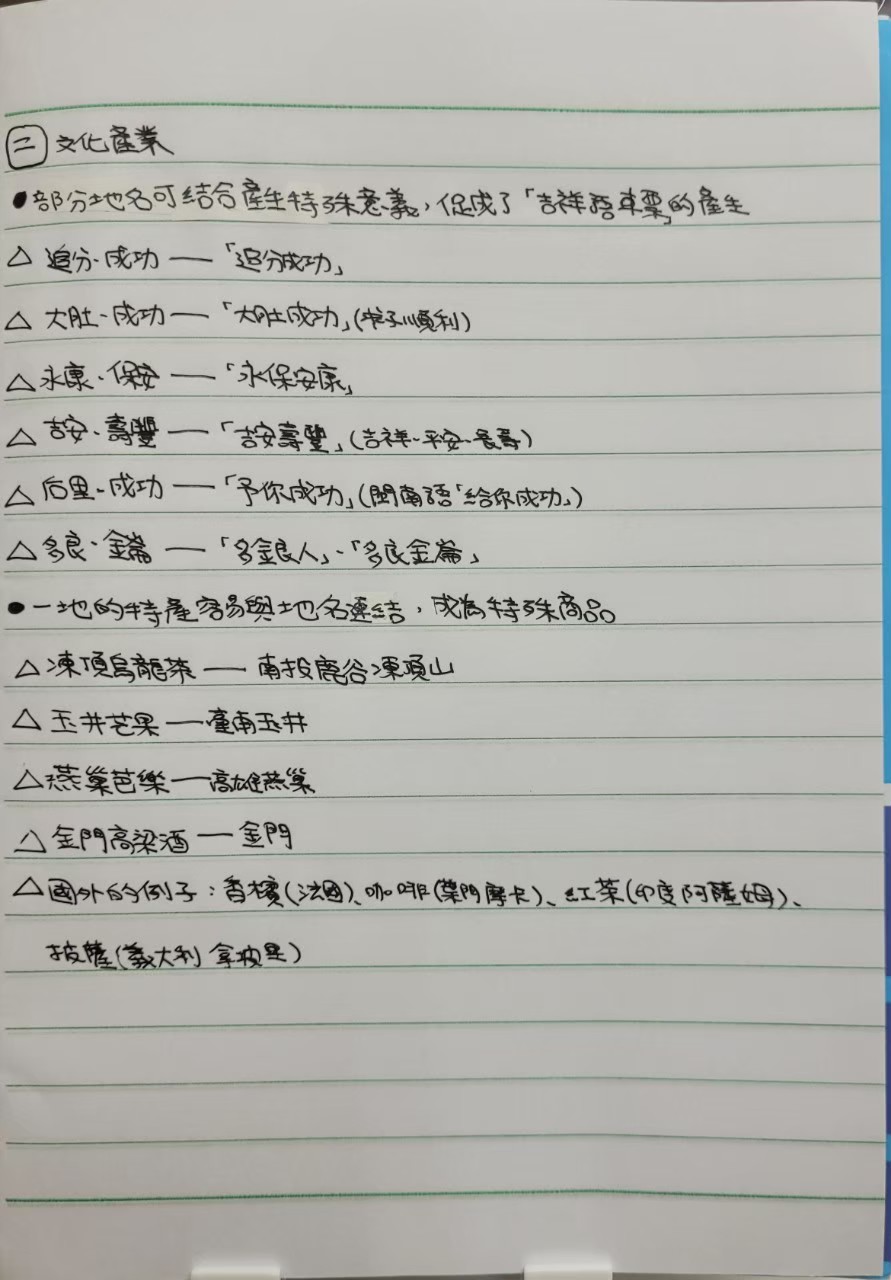 ㊁ 文化產業
●部分地名可結合產生特殊意義,促成了「吉祥語車票」的產生
△ 追分、成功——「追分成功」
△ 大肚、成功——「大肚成功」(孕子順利)
△ 永康、保安——「永保安康」
△ 吉安、壽豐——「吉安壽豐」(吉祥、平安、長壽)
△ 后里、成功——「予你成功」(閩南語「給你成功」)
△ 多良、金崙——「多金良人」、「多良金崙」
●一地的特產容易與地名連結,成為特殊商品
△ 凍頂烏龍茶——南投鹿谷凍頂山
△ 玉井芒果——臺南玉井
△ 燕巢芭樂——高雄燕巢
△ 金門高梁酒——金門
△ 國外的例子:香檳(法國)、咖啡(葉門摩卡)、紅茶(印度阿薩姆)、
披薩(義大利 拿坡里)